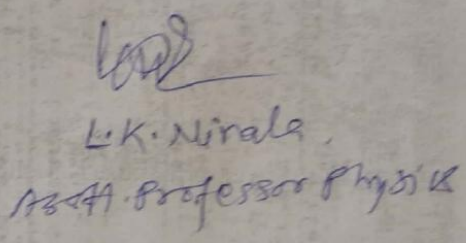 L.K. Nirala,
Asstt. Professor Physics